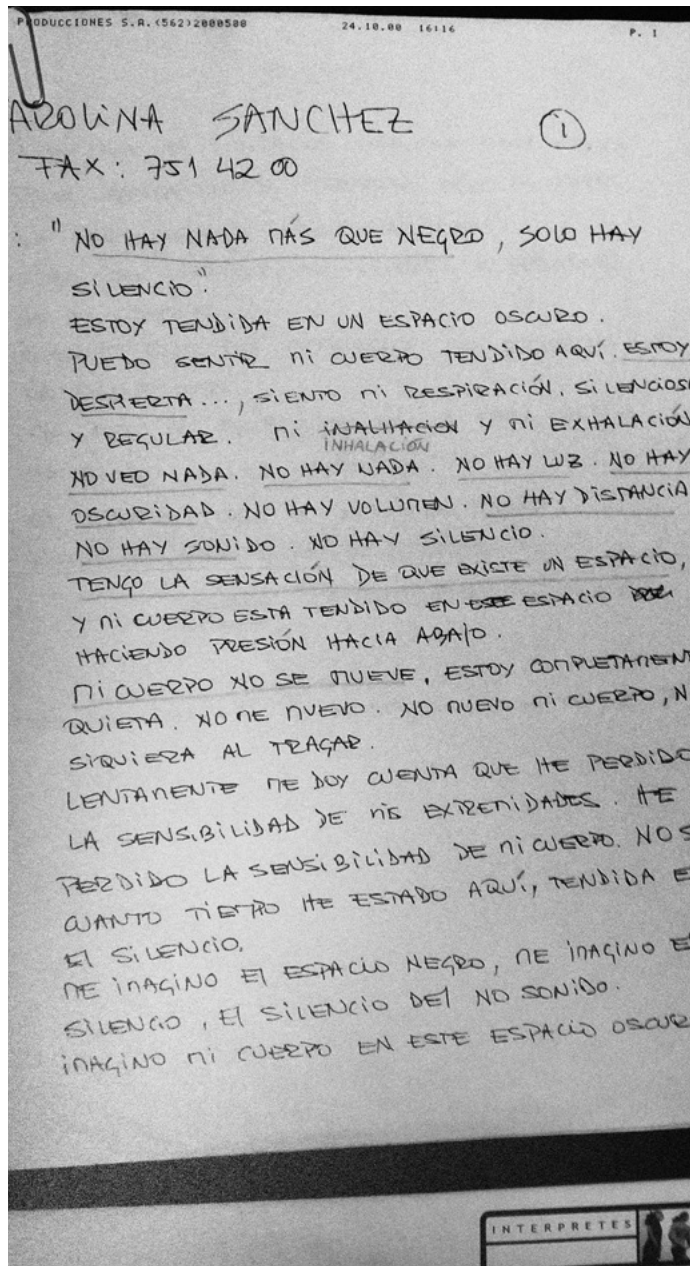 PRODUCCIONES S.A.(562)2000500 24.10.00 16:16 P. 1
AROLINA SANCHEZ 1
FAX: 751 42 00
: "NO HAY NADA MÁS QUE NEGRO, SOLO HAY
SILENCIO".
ESTOY TENDIDA EN UN ESPACIO OSCURO.
PUEDO SENTIR MI CUERPO TENDIDO AQUÍ. ESTOY
DESPIERTA..., SIENTO MI RESPIRACIÓN. SILENCIOS
Y REGULAR. MI INALHACION Y MI EXHALACIÓN
INHALACIÓN
NO VEO NADA. NO HAY NADA. NO HAY LUZ. NO HAY
OSCURIDAD. NO HAY VOLUMEN. NO HAY DISTANCIA
NO HAY SONIDO. NO HAY SILENCIO.
TENGO LA SENSACIÓN DE QUE EXISTE UN ESPACIO,
Y MI CUERPO ESTA TENDIDO EN ESE ESPACIO
HACIENDO PRESIÓN HACIA ABAJO.
MI CUERPO NO SE MUEVE, ESTOY COMPLETAMENT
QUIETA. NO ME MUEVO. NO MUEVO MI CUERPO, N
SIQUIERA AL TRAGAR.
LENTAMENTE ME DOY CUENTA QUE HE PERDIDO
LA SENSIBILIDAD DE MIS EXTREMIDADES. HE
PERDIDO LA SENSIBILIDAD DE MI CUERPO. NO S
CUANTO TIEMPO HE ESTADO AQUÍ, TENDIDA E
El SILENCIO.
ME IMAGINO El ESPACIO NEGRO, ME IMAGINO E
SILENCIO, El SILENCIO DEl NO SONIDO.
IMAGINO MI CUERPO EN ESTE ESPACIO OSCUR
INTERPRETES